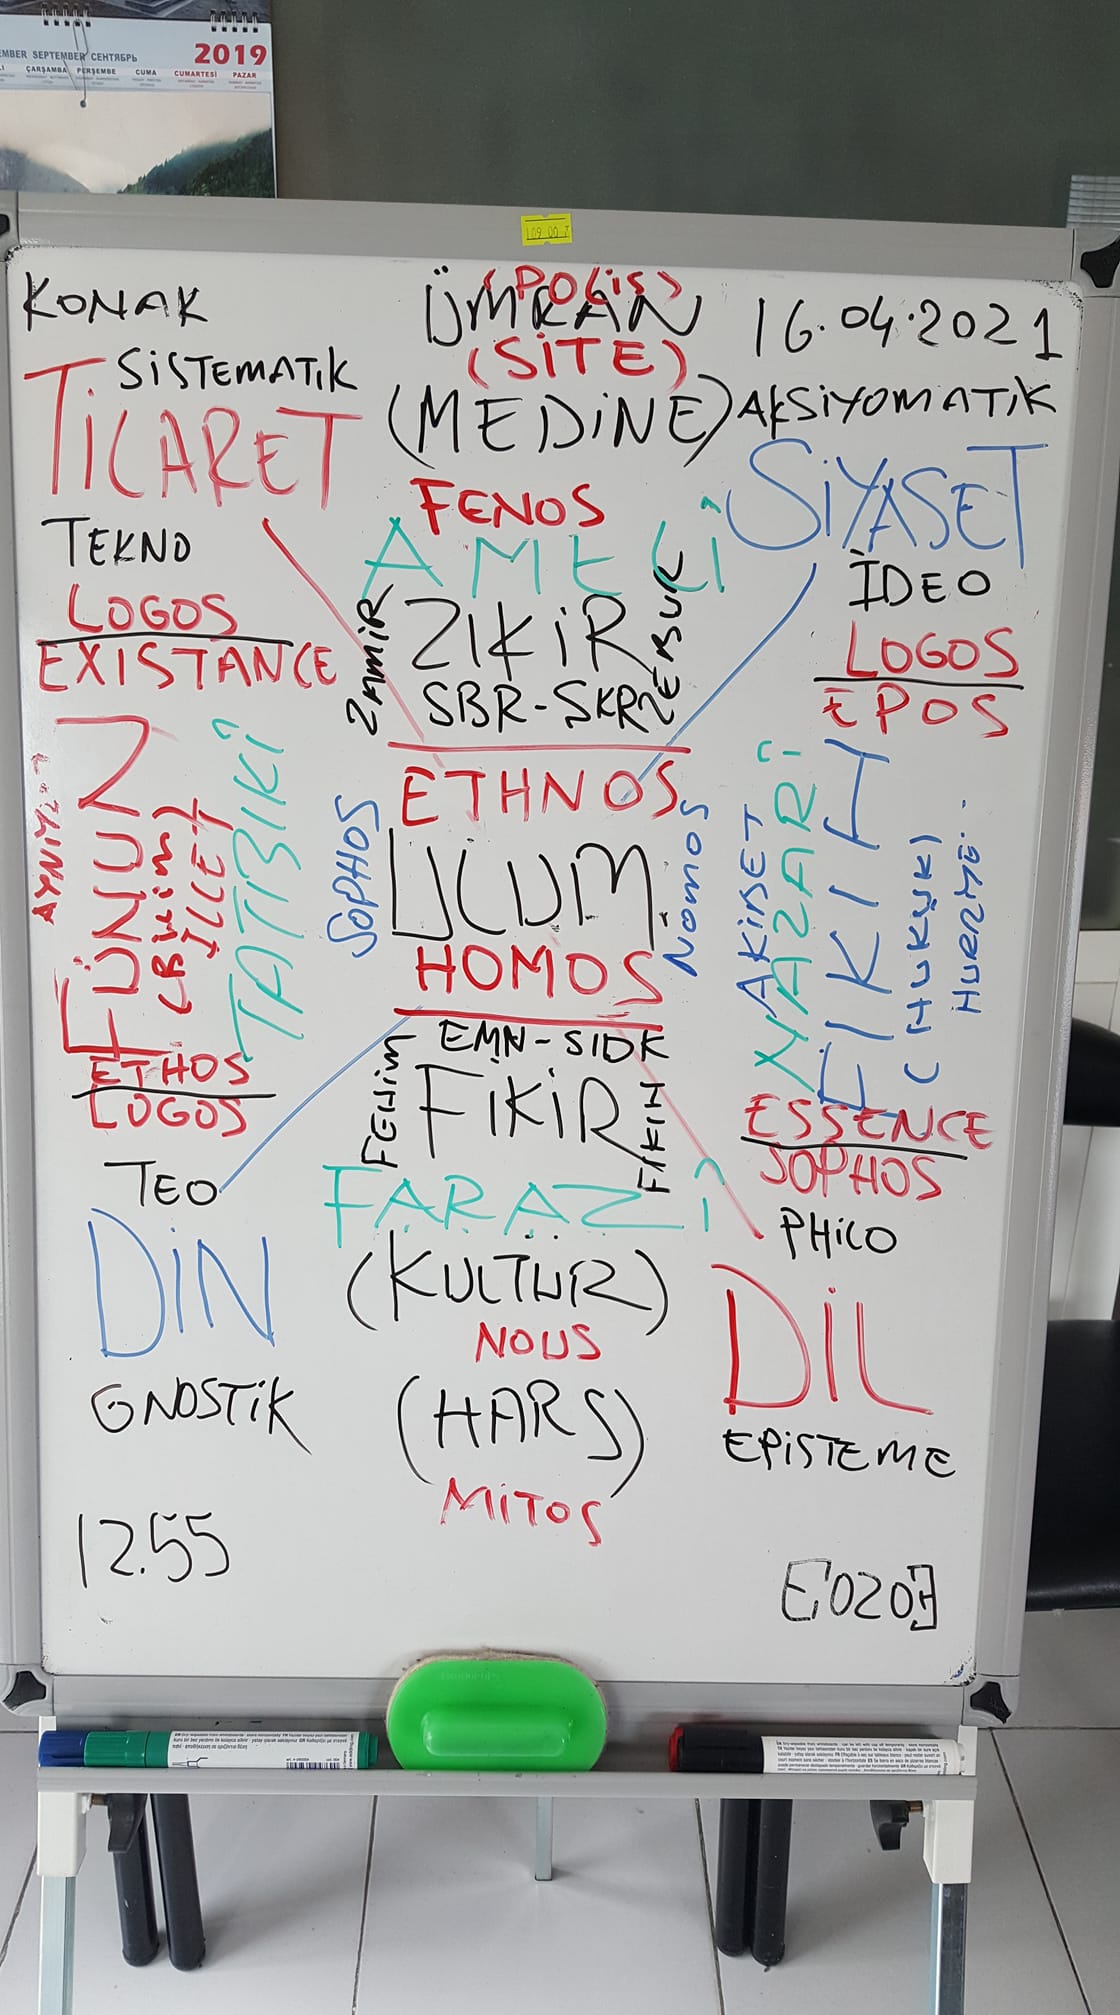 SEPTEMBER СЕНТЯБРЬ 2019
ÇARŞAMBA PERŞEMBE CUMA CUMARTESİ PAZAR
KONAK
(POLİS)
ÜMRAN
16.04.2021
(SİTE)
SİSTEMATİK
(MEDİNE)
AKSİYOMATİK
TİCARET
SİYASET
FENOS
AMELİ
TEKNO
İDEO
LOGOS
EXISTANCE
ZAMİR
ZİKİR
LOGOS
EPOS
SBR-SKR
ETHNOS
FÜNUN
(BİLİM)
İLLET
TATBİKİ
SOPHOS
ULUM
NOMOS
AKİBET
NAZARİ
FIKIH
(HUKUK)
HOMOS
EMN-SIDK
ETHOS
LOGOS
FEHİM
FİKİR
FIKIH
ESSENCE
SOPHOS
TEO
FARAZİ
PHILO
DİN
(KULTUR)
NOUS
DİL
GNOSTİK
(HARS)
EPİSTEME
MİTOS
12.55